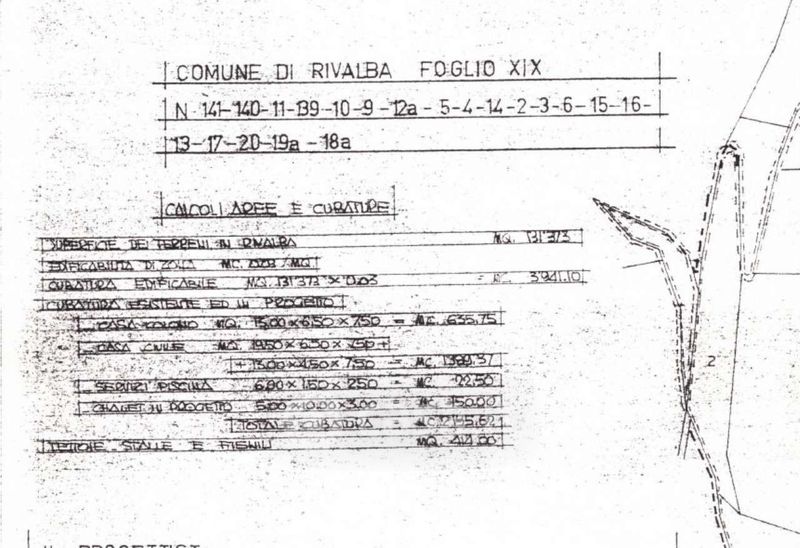 COMUNE DI RIVALBA FOGLIO XIX
N 141-140-11-139-10-9-12a-5-4-14-2-3-6-15-16-
13-17-20-19a-18a
CALCOLI AREE E CUBATURE
SUPERFICIE DEI TERRENI IN RIVALBA MQ. 131'373
EDIFICABILITA DI ZONA MC. /MQ
CUBATURA EDIFICABILE MQ. 131'373 × 0.03 = MC. 3'941.10
CUBATURA ESISTENTE ED IN PROGETTO
CASA COLONO MQ. × 6.50 × 7.50 = MC. 635.75
CASA CIVILE MQ. 19.50 × 6.50 × 7.50 +
+ 13.00 × 4.50 × 7.50 = MC. 1389.37
SERVIZI PISCINA 6.00 × 1.50 × 2.50 = MC. 22.50
CHALET IN PROGETTO 5.00 × 10.00 × 3.00 = MC. 150.00
TOTALE CUBATURA = MC.
TETTOIE STALLE E FIENILI MQ.
2